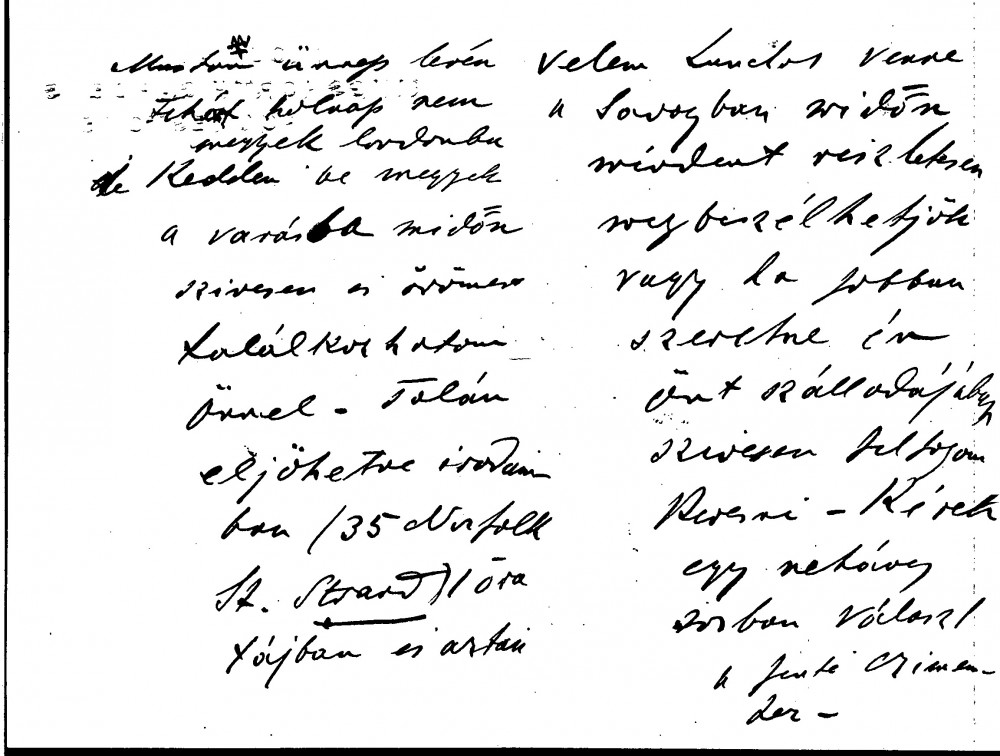 ünnep lévén
holnap nem
megyek londonba
de Kedden be megyek
a városba midőn
szivesen és örömest
találkozhatom
önnel - Talán
eljöhetne irodám
ban (35 Norfolk
St. Strand) 1 óra
tájban és aztán
velem Lunchot venne
a Savoyban midőn
mindent részletesen
megbeszélhetjök
vagy ha jobban
szeretne én
önt szállodájában
szivesen felfogom
keresni - Kérek
egy nehány
sorban választ
a fenti czimem-
re -